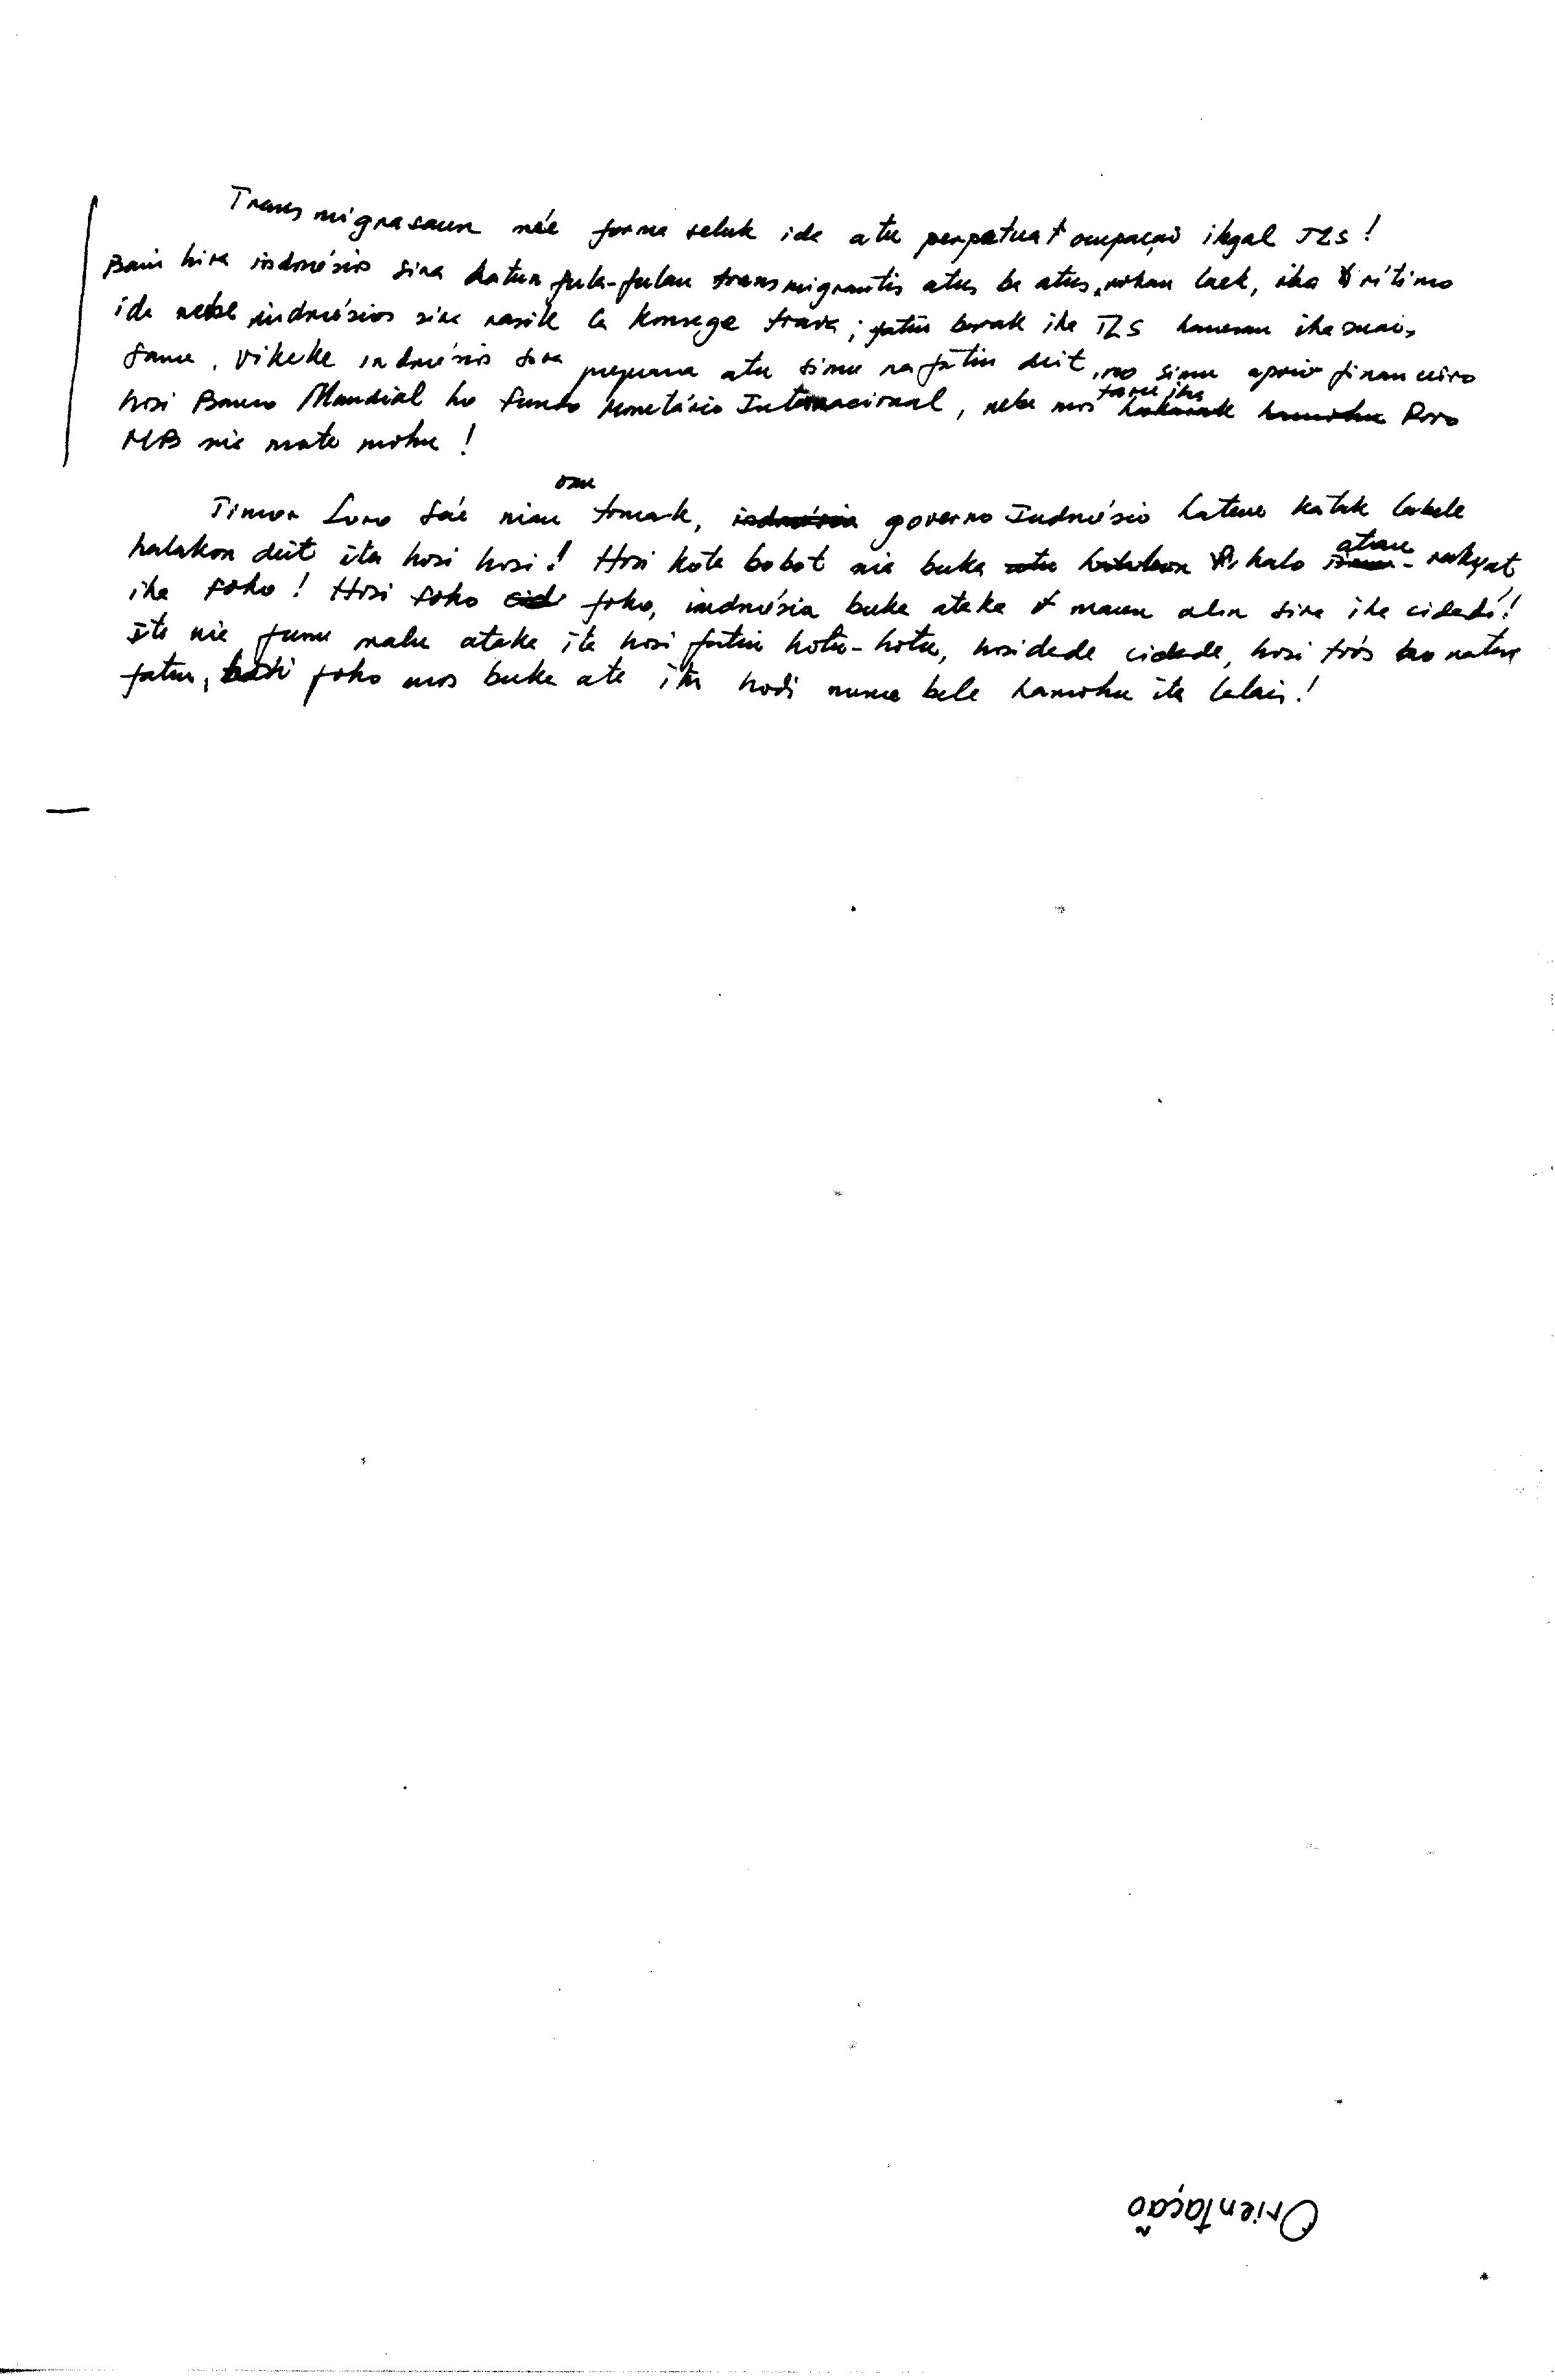 Transmigrasaun née forma seluk ida atu perpetuat ocupação ilegal TLS!
Bain hira indonésios sira hatun fula-fulan transmigrantis atus ba atus, rohan laek, iha rítimo
ida nebé indonésios sira rasik la konsege trava; fatin barak iha TLS hanesan iha Suai,
Same, Vikeke indonésio sira prepara atu simu nafatin deit, no simu apoio financeiro
hosi Banco Mundial ho Fundo Monetário Internacional, nebe mos Povo
MB nia mate mohu!
Timor Loro Sáe nian tomak, governo Indonésio hatene katak labele
halakon deit ita hosi hosi! Hosi kota bobot nia buka halo rakyat
iha foho! Hosi foho foho, indonésia buka ataka maun alin sira iha cidade!
Ita nia funu nalu ataka ita hosi fatin hotu-hotu, hosi cidade, hosi
fatin, foho mos buka ita hodi nune bele hamohu ita lalais!
Orientação